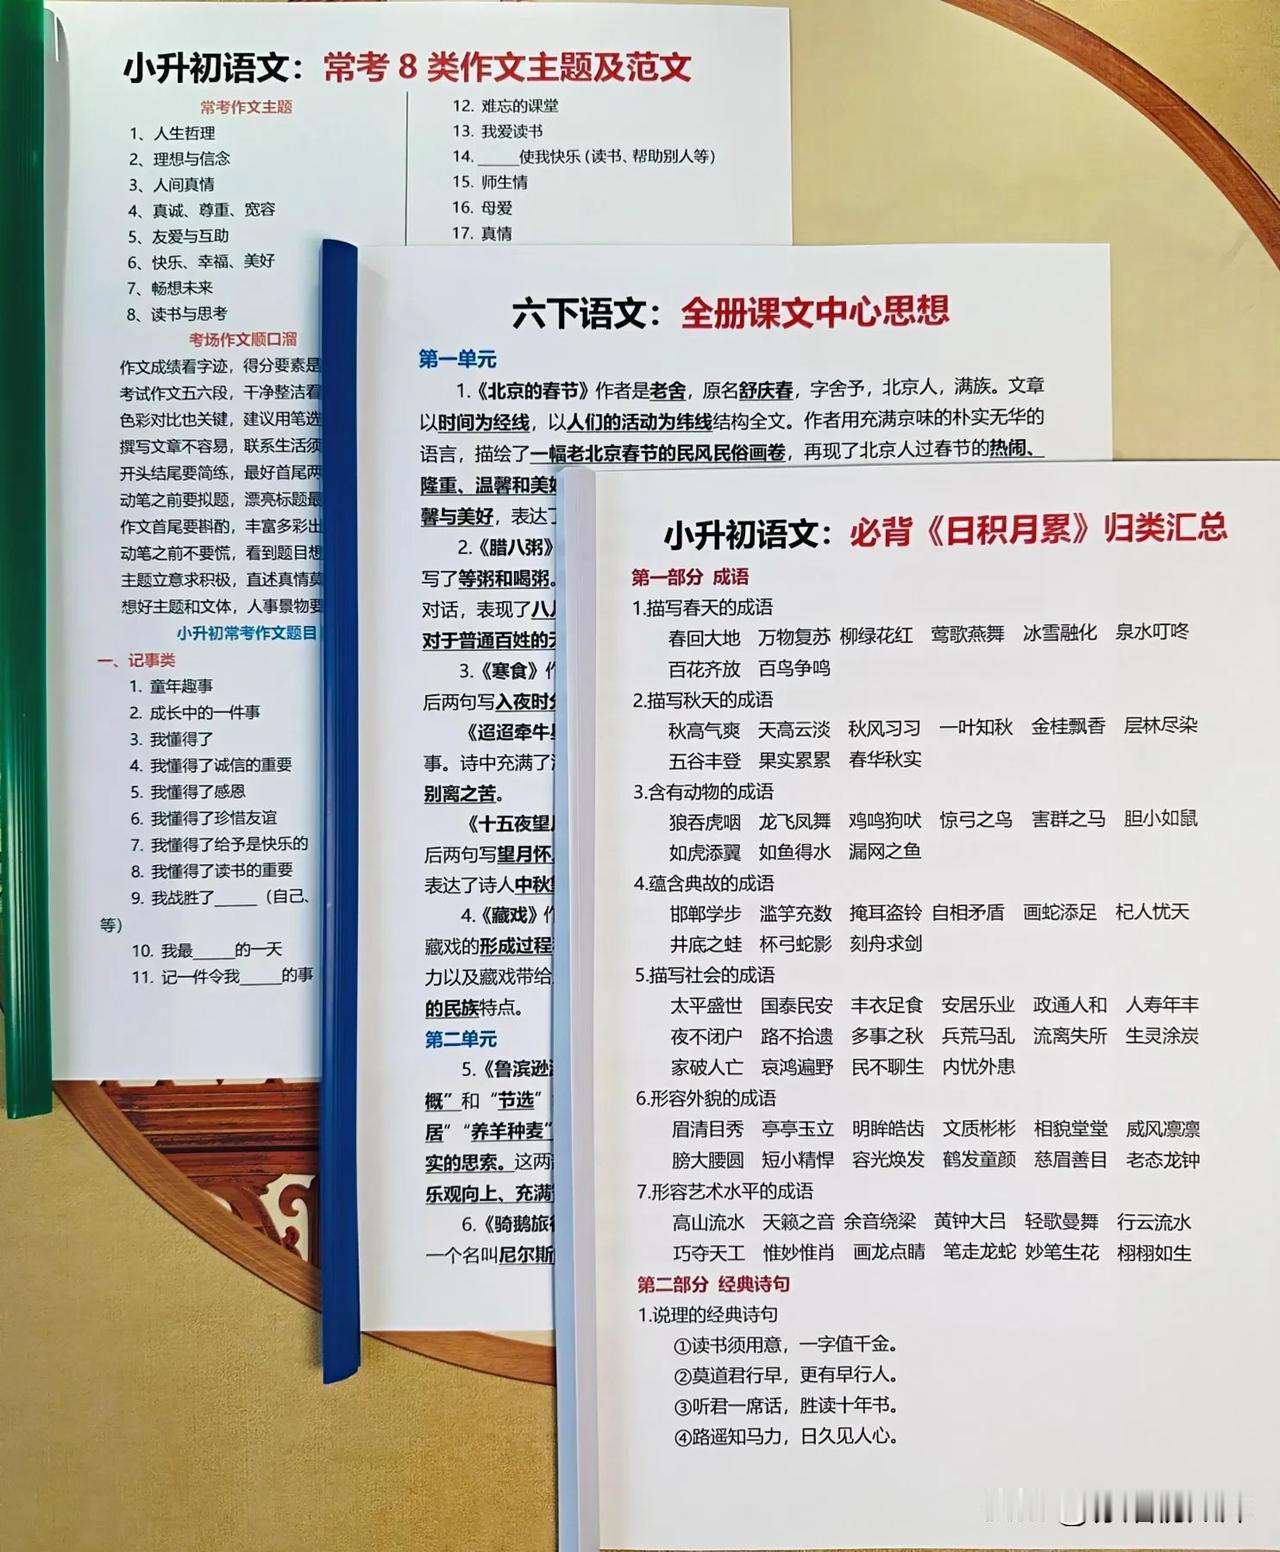 小升初语文：常考 8 类作文主题及范文
常考作文主题
1、人生哲理
2、理想与信念
3、人间真情
4、真诚、尊重、宽容
5、友爱与互助
6、快乐、幸福、美好
7、畅想未来
8、读书与思考
考场作文顺口溜
作文成绩看字迹，得分要素是
考试作文五六段，干净整洁看
色彩对比也关键，建议用笔选
撰写文章不容易，联系生活须
开头结尾要简练，最好首尾两
动笔之前要拟题，漂亮标题最
作文首尾要斟酌，丰富多彩出
动笔之前不要慌，看到题目想
主题立意求积极，直述真情莫
想好主题和文体，人事景物要
小升初常考作文题目
一、记事类
1. 童年趣事
2. 成长中的一件事
3. 我懂得了
4. 我懂得了诚信的重要
5. 我懂得了感恩
6. 我懂得了珍惜友谊
7. 我懂得了给予是快乐的
8. 我懂得了读书的重要
9. 我战胜了_____（自己、
等）
10. 我最_____的一天
11. 记一件令我_____的事
12. 难忘的课堂
13. 我爱读书
14. _____使我快乐（读书、帮助别人等）
15. 师生情
16. 母爱
17. 真情
六下语文：全册课文中心思想
第一单元
1.《北京的春节》作者是老舍，原名舒庆春，字舍予，北京人，满族。文章
以时间为经线，以人们的活动为纬线结构全文。作者用充满京味的朴实无华的
语言，描绘了一幅老北京春节的民风民俗画卷，再现了北京人过春节的热闹、
隆重、温馨和美
馨与美好，表达了
2.《腊八粥》
写了等粥和喝粥。
对话，表现了八
对于普通百姓的
3.《寒食》作
后两句写入夜时分
《迢迢牵牛星
事。诗中充满了
别离之苦。
《十五夜望
后两句写望月怀
表达了诗人中秋
4.《藏戏》作
藏戏的形成过程
力以及藏戏带给
的民族特点。
第二单元
5.《鲁滨逊
概”和“节选”
居”“养羊种麦”
实的思索。这两
乐观向上、充满
6.《骑鹅旅行
一个名叫尼尔斯
小升初语文：必背《日积月累》归类汇总
第一部分 成语
1.描写春天的成语
春回大地 万物复苏 柳绿花红 莺歌燕舞 冰雪融化 泉水叮咚
百花齐放 百鸟争鸣
2.描写秋天的成语
秋高气爽 天高云淡 秋风习习 一叶知秋 金桂飘香 层林尽染
五谷丰登 果实累累 春华秋实
3.含有动物的成语
狼吞虎咽 龙飞凤舞 鸡鸣狗吠 惊弓之鸟 害群之马 胆小如鼠
如虎添翼 如鱼得水 漏网之鱼
4.蕴含典故的成语
邯郸学步 滥竽充数 掩耳盗铃 自相矛盾 画蛇添足 杞人忧天
井底之蛙 杯弓蛇影 刻舟求剑
5.描写社会的成语
太平盛世 国泰民安 丰衣足食 安居乐业 政通人和 人寿年丰
夜不闭户 路不拾遗 多事之秋 兵荒马乱 流离失所 生灵涂炭
家破人亡 哀鸿遍野 民不聊生 内忧外患
6.形容外貌的成语
眉清目秀 亭亭玉立 明眸皓齿 文质彬彬 相貌堂堂 威风凛凛
膀大腰圆 短小精悍 容光焕发 鹤发童颜 慈眉善目 老态龙钟
7.形容艺术水平的成语
高山流水 天籁之音 余音绕梁 黄钟大吕 轻歌曼舞 行云流水
巧夺天工 惟妙惟肖 画龙点睛 笔走龙蛇 妙笔生花 栩栩如生
第二部分 经典诗句
1.说理的经典诗句
①读书须用意，一字值千金。
②莫道君行早，更有早行人。
③听君一席话，胜读十年书。
④路遥知马力，日久见人心。